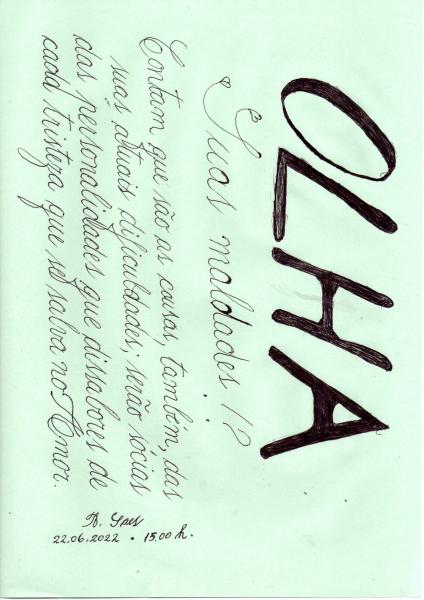 OLHA
Suas maldades!?
Contam que são as causas, também, das
suas atuais dificuldades; serão sócios
das personalidades que dissabores de
cada tristeza que se salva no Amor.
22.06.2022 • 15.00 h.